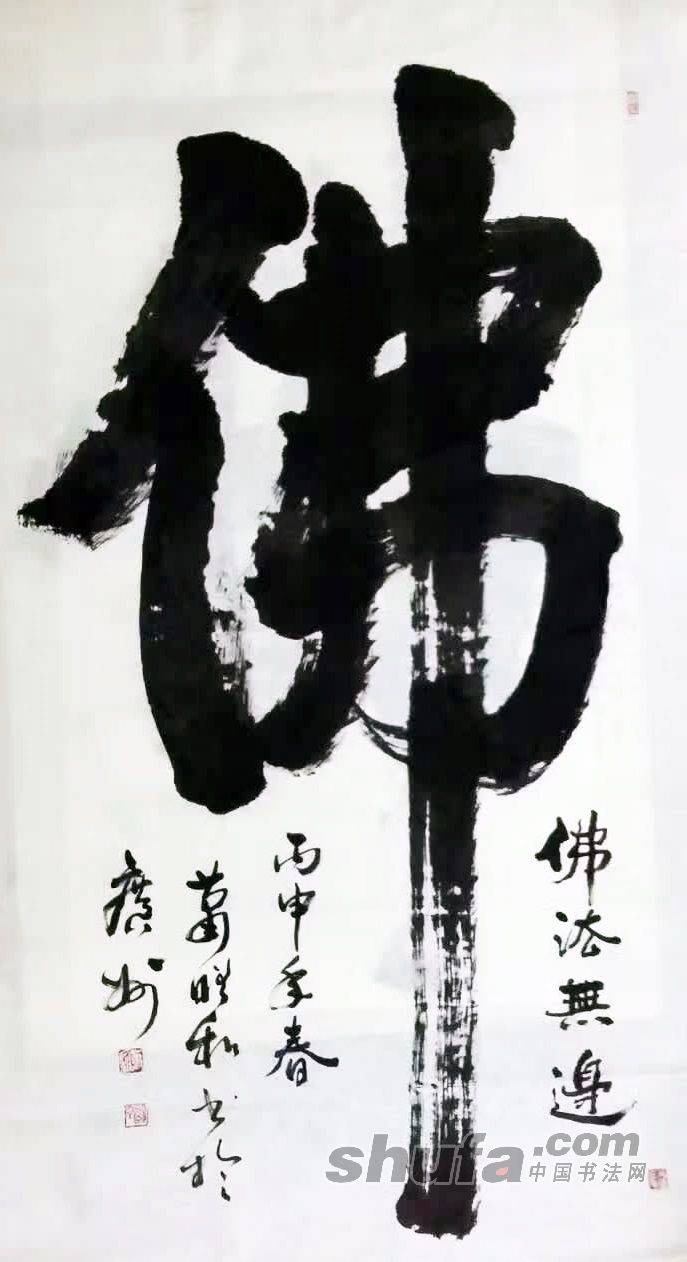 佛
佛法無邊
丙申年春
書於
廣州
shufa.com
中国书法网